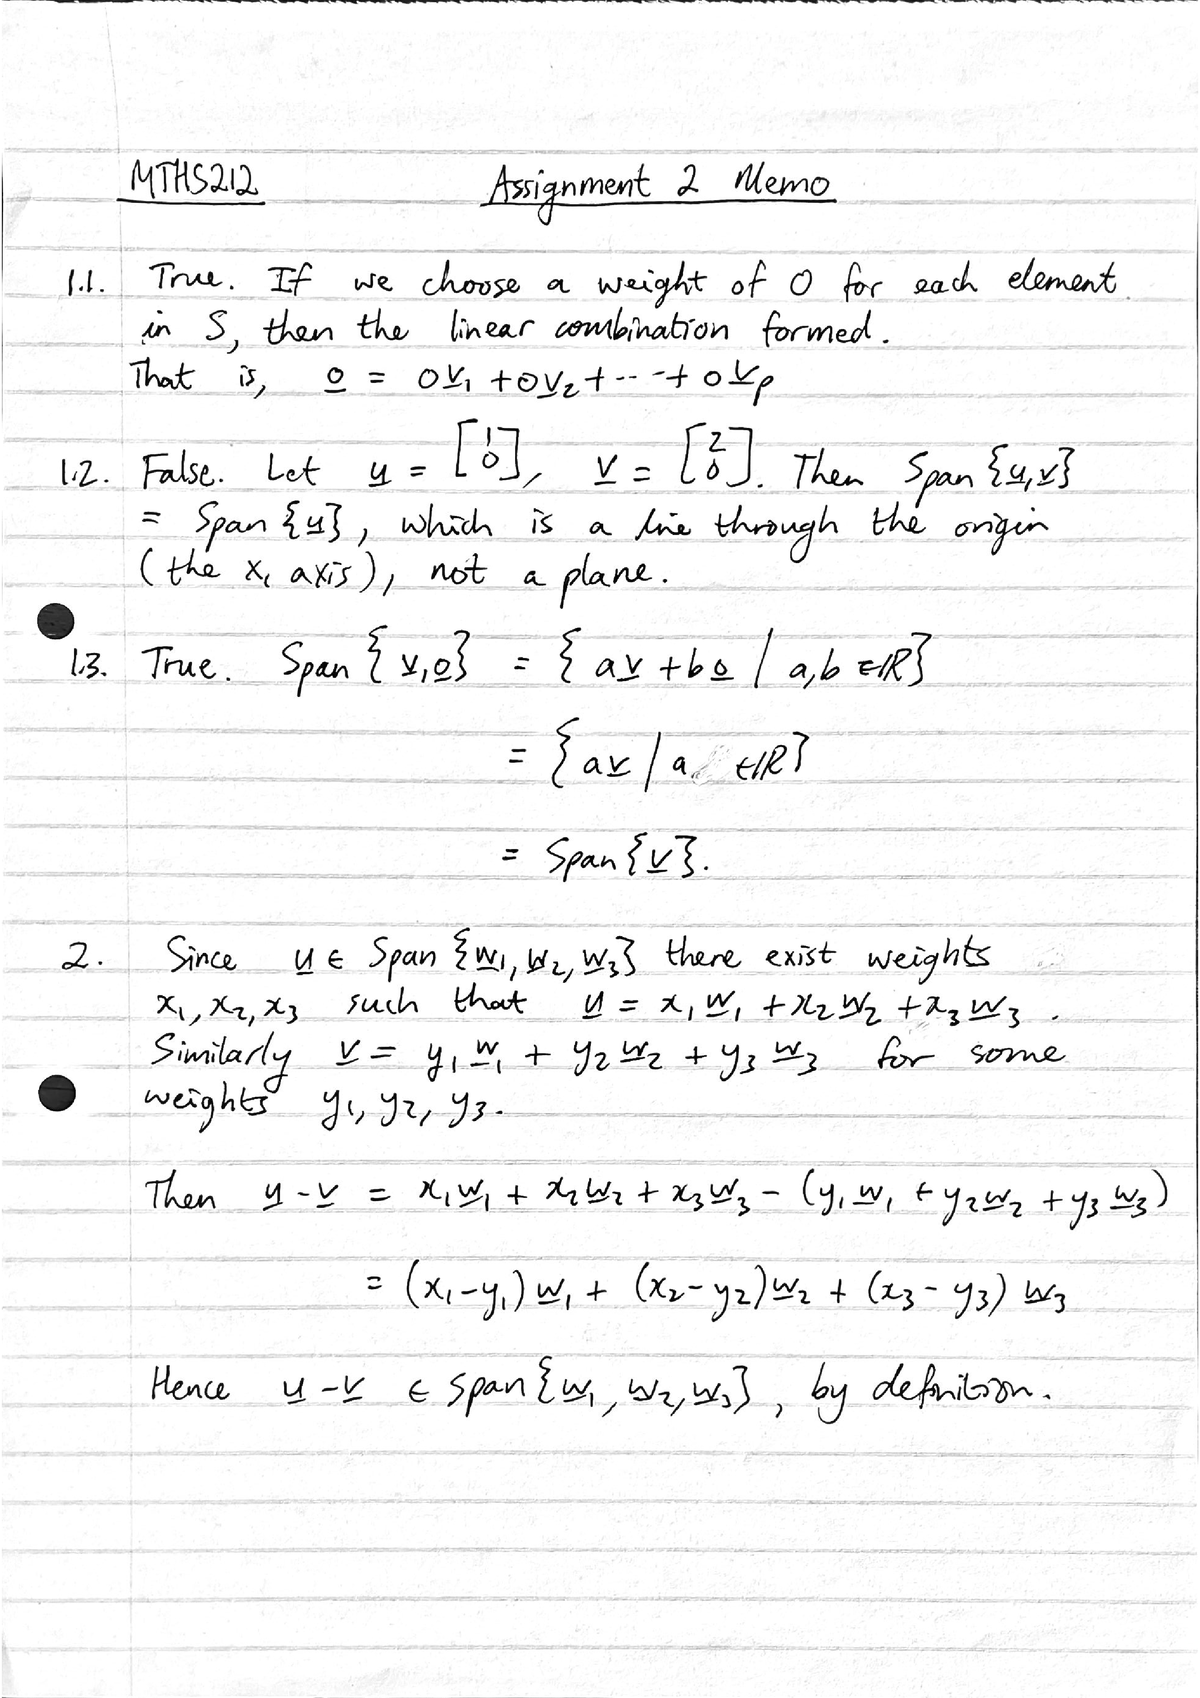 MTHS212 Assignment 2 Memo
1.1. True. If we choose a weight of 0 for each element
in S, then the linear combination formed.
That is, 0 = 0v₁ + 0v₂ + ··· + 0vₚ
1.2. False. Let u = [1 0], v = [2 0]. Then Span {u,v}
= Span {u}, which is a line through the origin
(the x₁ axis), not a plane.
1.3. True. Span {v,0} = {av + b0 | a,b ∈ ℝ}
= {av | a ∈ ℝ}
= Span {v}.
2. Since u ∈ Span {w₁, w₂, w₃} there exist weights
x₁, x₂, x₃ such that u = x₁w₁ + x₂w₂ + x₃w₃.
Similarly v = y₁w₁ + y₂w₂ + y₃w₃ for some
weights y₁, y₂, y₃.
Then u - v = x₁w₁ + x₂w₂ + x₃w₃ - (y₁w₁ + y₂w₂ + y₃w₃)
= (x₁-y₁)w₁ + (x₂-y₂)w₂ + (x₃-y₃)w₃
Hence u - v ∈ span {w₁, w₂, w₃}, by definition.